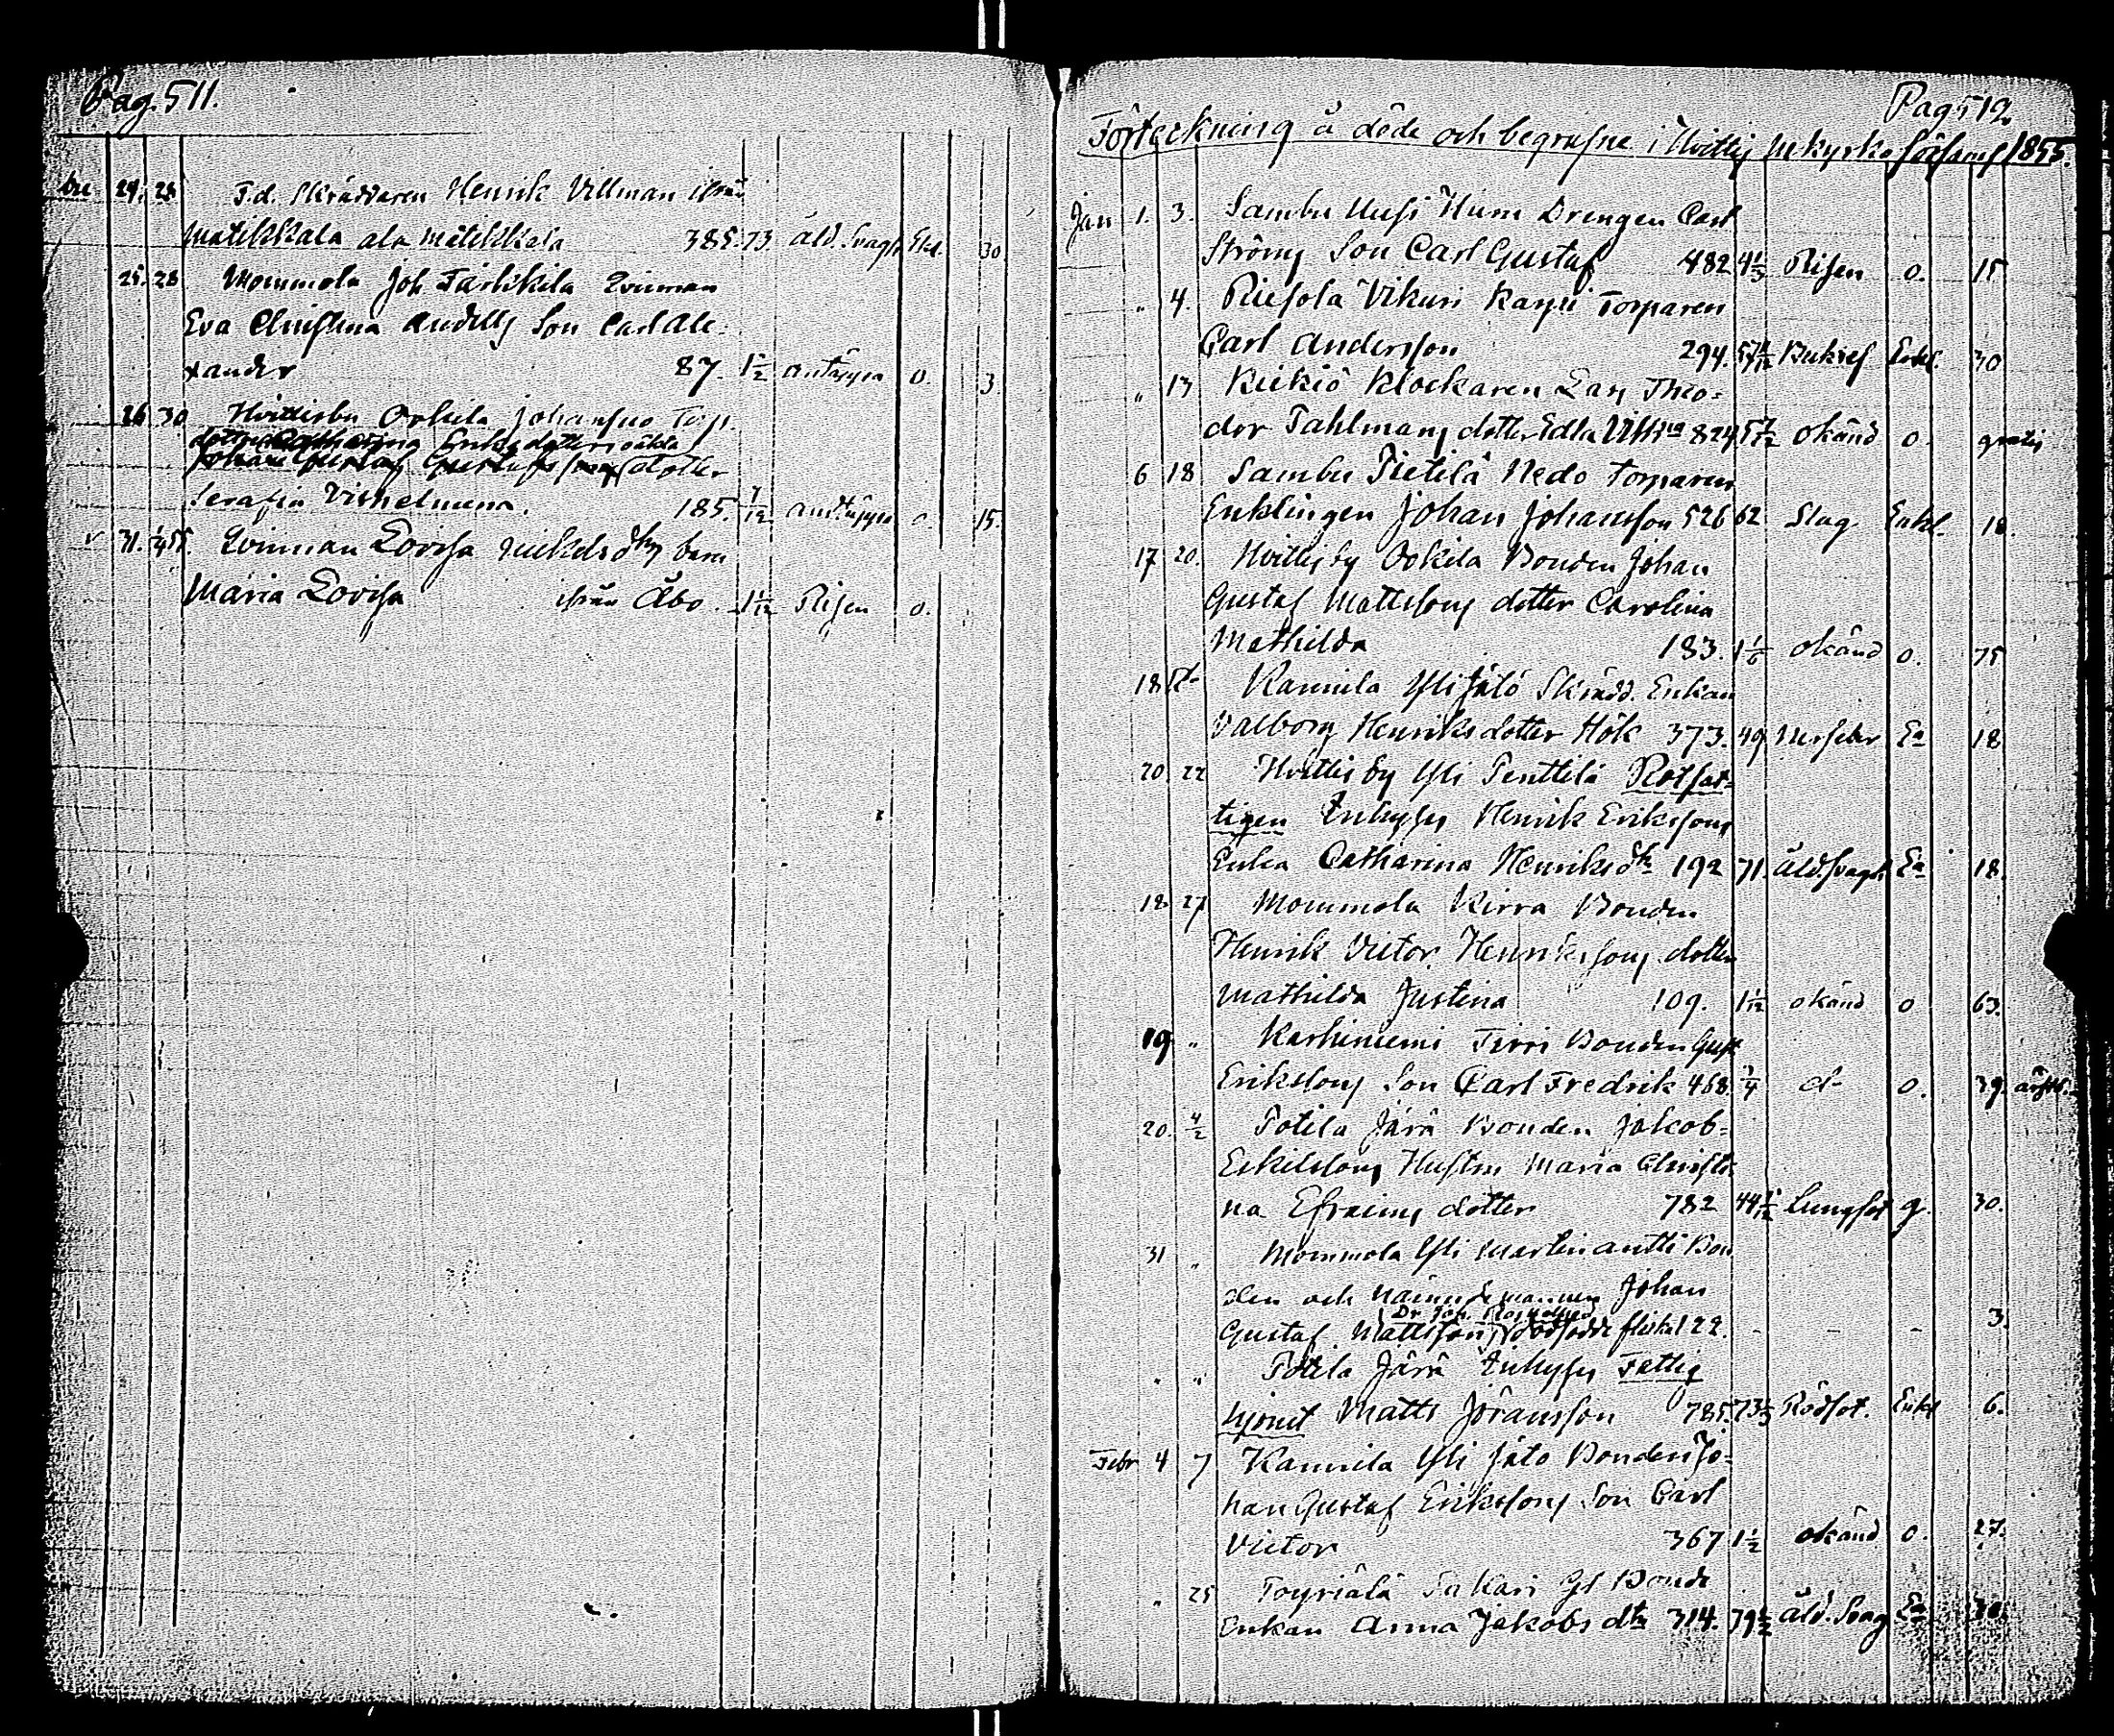 Pag. 511.
br 24. 28 F.d. Skräddaren Henrik Villman ifrån
Matikkala ala Matikkala 385. 73 åld. Svagh Ekl. 30
25. 28 Mommola Joh Tärkkilä Qvinnan
Eva Christina Andells Son Carl Ale-
xander 87. 1 1/2 andtäppa o. 3.
26 30 Hvittisby Orkila Johansuo Torp.
dotter Catharina Eriksdotters oäkta
Johan Gustaf Gustafsson dotter
Serafia Vilhelmina. 185. 7/12 andtäppa o. 15.
v 31. 1/4 55. Qvinnan Lovisa Mickelsdtrs barn
Maria Lovisa ifrån Åbo. 1 1/12 Risen o.
Pag 512
Förteckning å döde och begrafne i Hvittis Mkyrko församl 1855.
Jan 1. 3. Sambu Uusi Humi Drengen Carl
Ströms Son Carl Gustaf 482 4 1/3 Risen o. 15
" 4. Riesola Vikuri Torparen
Carl Andersson 294. 57 Enkl. 30
" 13 Kiekiö Klockaren Lars Theo-
dor Tahlmans dotter Edla 824 5 7/12 okänd o. gratis
6 18 Sambu Pietilä Nedo Torparen
Enklingen Johan Johansson 526 62 Slag Enkl. 18.
17 20. Hvittisby Orkila Bonden Johan
Gustaf Mattssons dotter Carolina
Mathilda 183. 1 1/6 okänd o. 75
18 dt Kannila Yli Jätö Skrädd. Enkan
Valborg Henriksdotter Hök 373. 49 Ea 18
20. 22 Hvittis by Yli Penttilä Rotfat-
tigen Inhyses Henrik Erikssons
Enka Catharina Henriksdtr 192 71. Åld. svagh Ea 18.
18 27 Mommola Kirra Bonden
Henrik Victor Henrikssons dotter
Mathilda Justina 109. 1 1/12 okänd o 63.
19 " Karhiniemi Tirri Bonden Gust
Erikssons Son Carl Fredrik 468. 3/4 do o. 39.
20. 4/2 Potila Järä Bonden Jakob
Eskilssons Hustru Maria Christi-
na Efraims dotter 782 44 1/12 Lungsot g. 30.
31 " Mommola Yli Martin antti Bon
den och nämndemannen Johan
Gustaf Mattssons dödfödde flicka 122. - - - 3.
" " Potila Järä Inhyses Fattig
hjonet Matts Jöransson 785. 73 1/3 Rödsot. Enkl 6.
Febr 4 7 Kannila Yli Jätö Bonden Jo-
han Gustaf Erikssons Son Carl
Victor 367 1 1/2 okänd o. 27.
" 25 Toyriälä Sakari Gl Bonde
Enkan Anna Jakobs dtr 314. 79 1/2 Åld. Svag Ea 30.